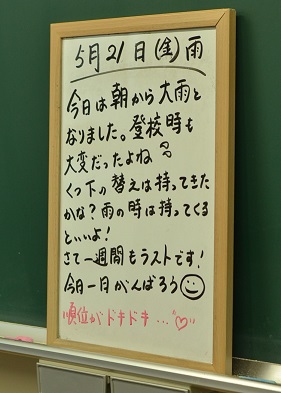 5月21日(金)雨
今日は朝から大雨と
なりました。登校時も
大変だったよね
くつ下の替えは持ってきた
かな?雨の時は持ってくる
といいよ!
さて一週間もラストです!
今日一日がんばろう
順位がドキドキ…♡